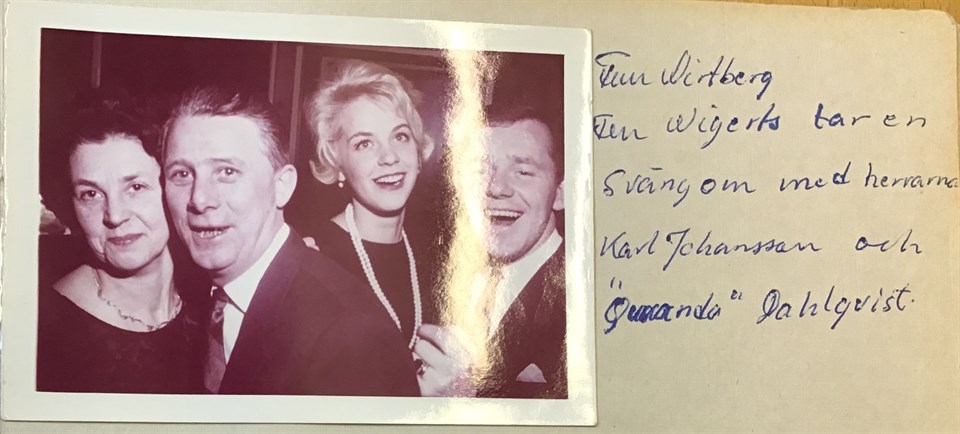 Fru Wirtberg
Fru Wigerts tar en
svängom med herrarna
Karl Johansson och
" " Dahlqvist.